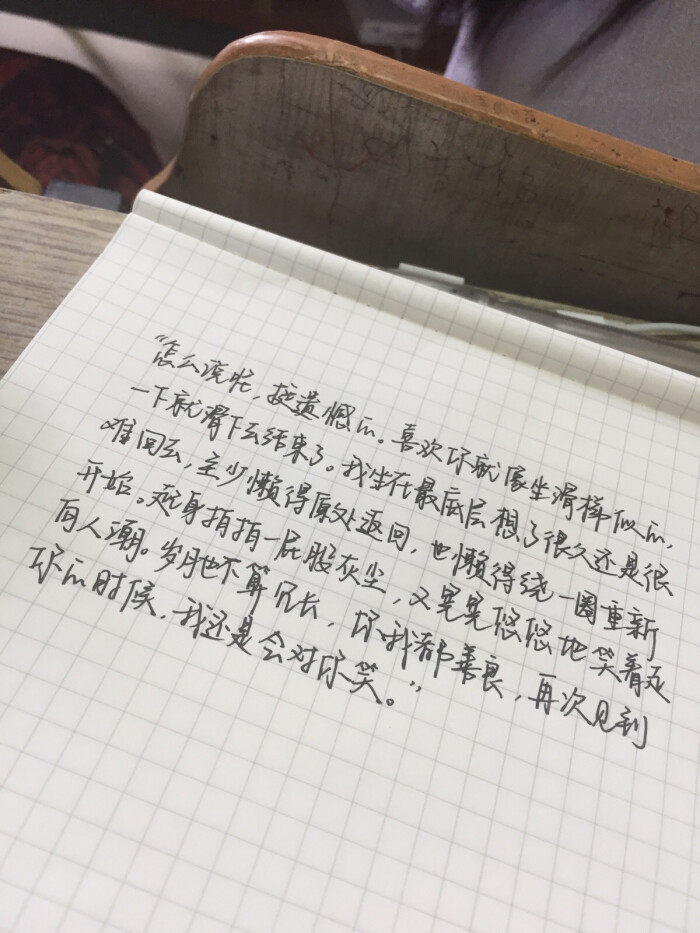 “怎么说呢，挺遗憾的。喜欢你就像坐滑梯似的，
一下就滑下去结束了。我坐在最底层想了很久还是很
难回去，至少懒得原处返回，也懒得绕一圈重新
开始。起身拍拍一屁股灰尘，又晃晃悠悠地笑着走
向人潮。岁月也不算冗长，你我都善良，再次见到
你的时候，我还是会对你笑。”